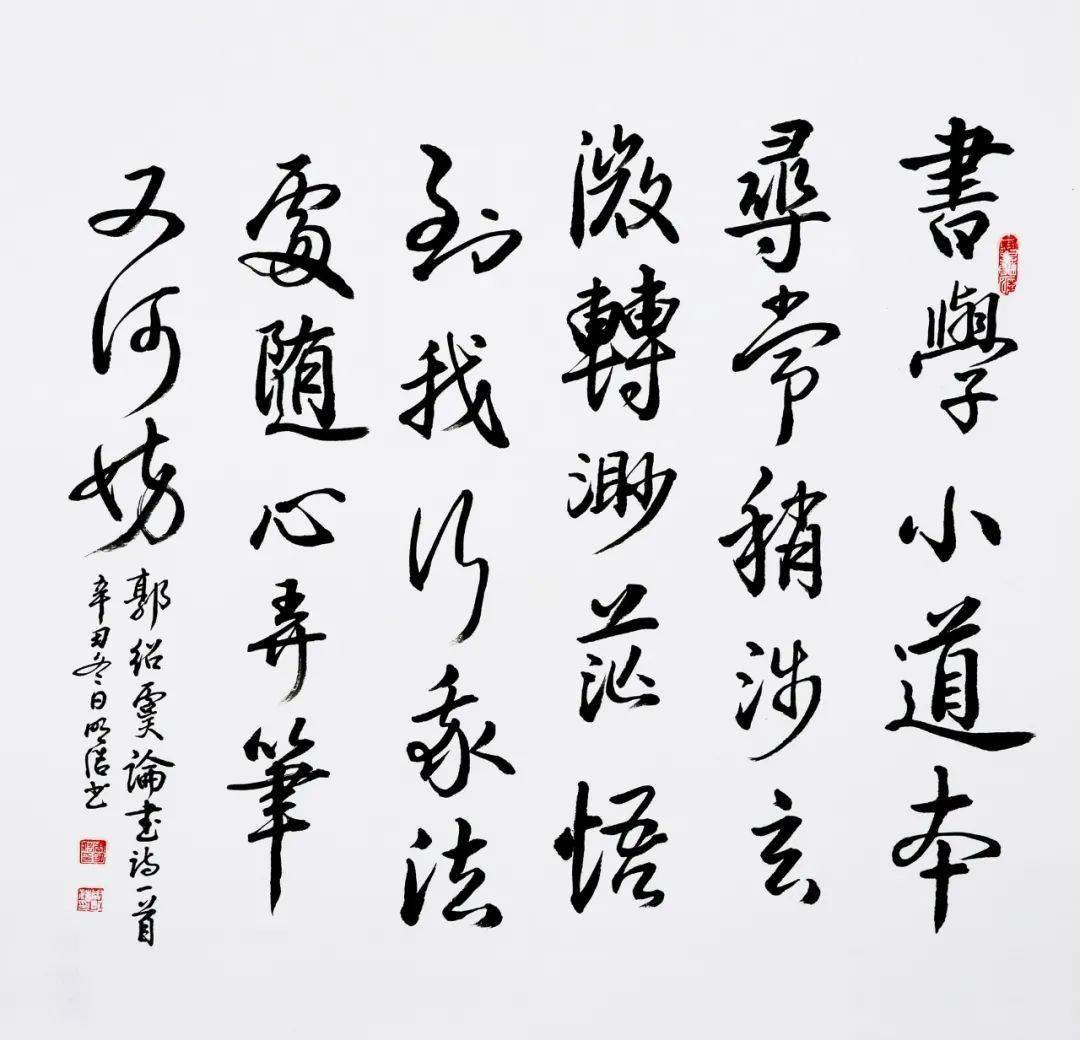 書學小道本
尋常稍涉玄
微轉渺茫悟
到我行我法
處随心弄筆
又何妨
郭绍虞論书诗一首
辛丑冬日明浩书